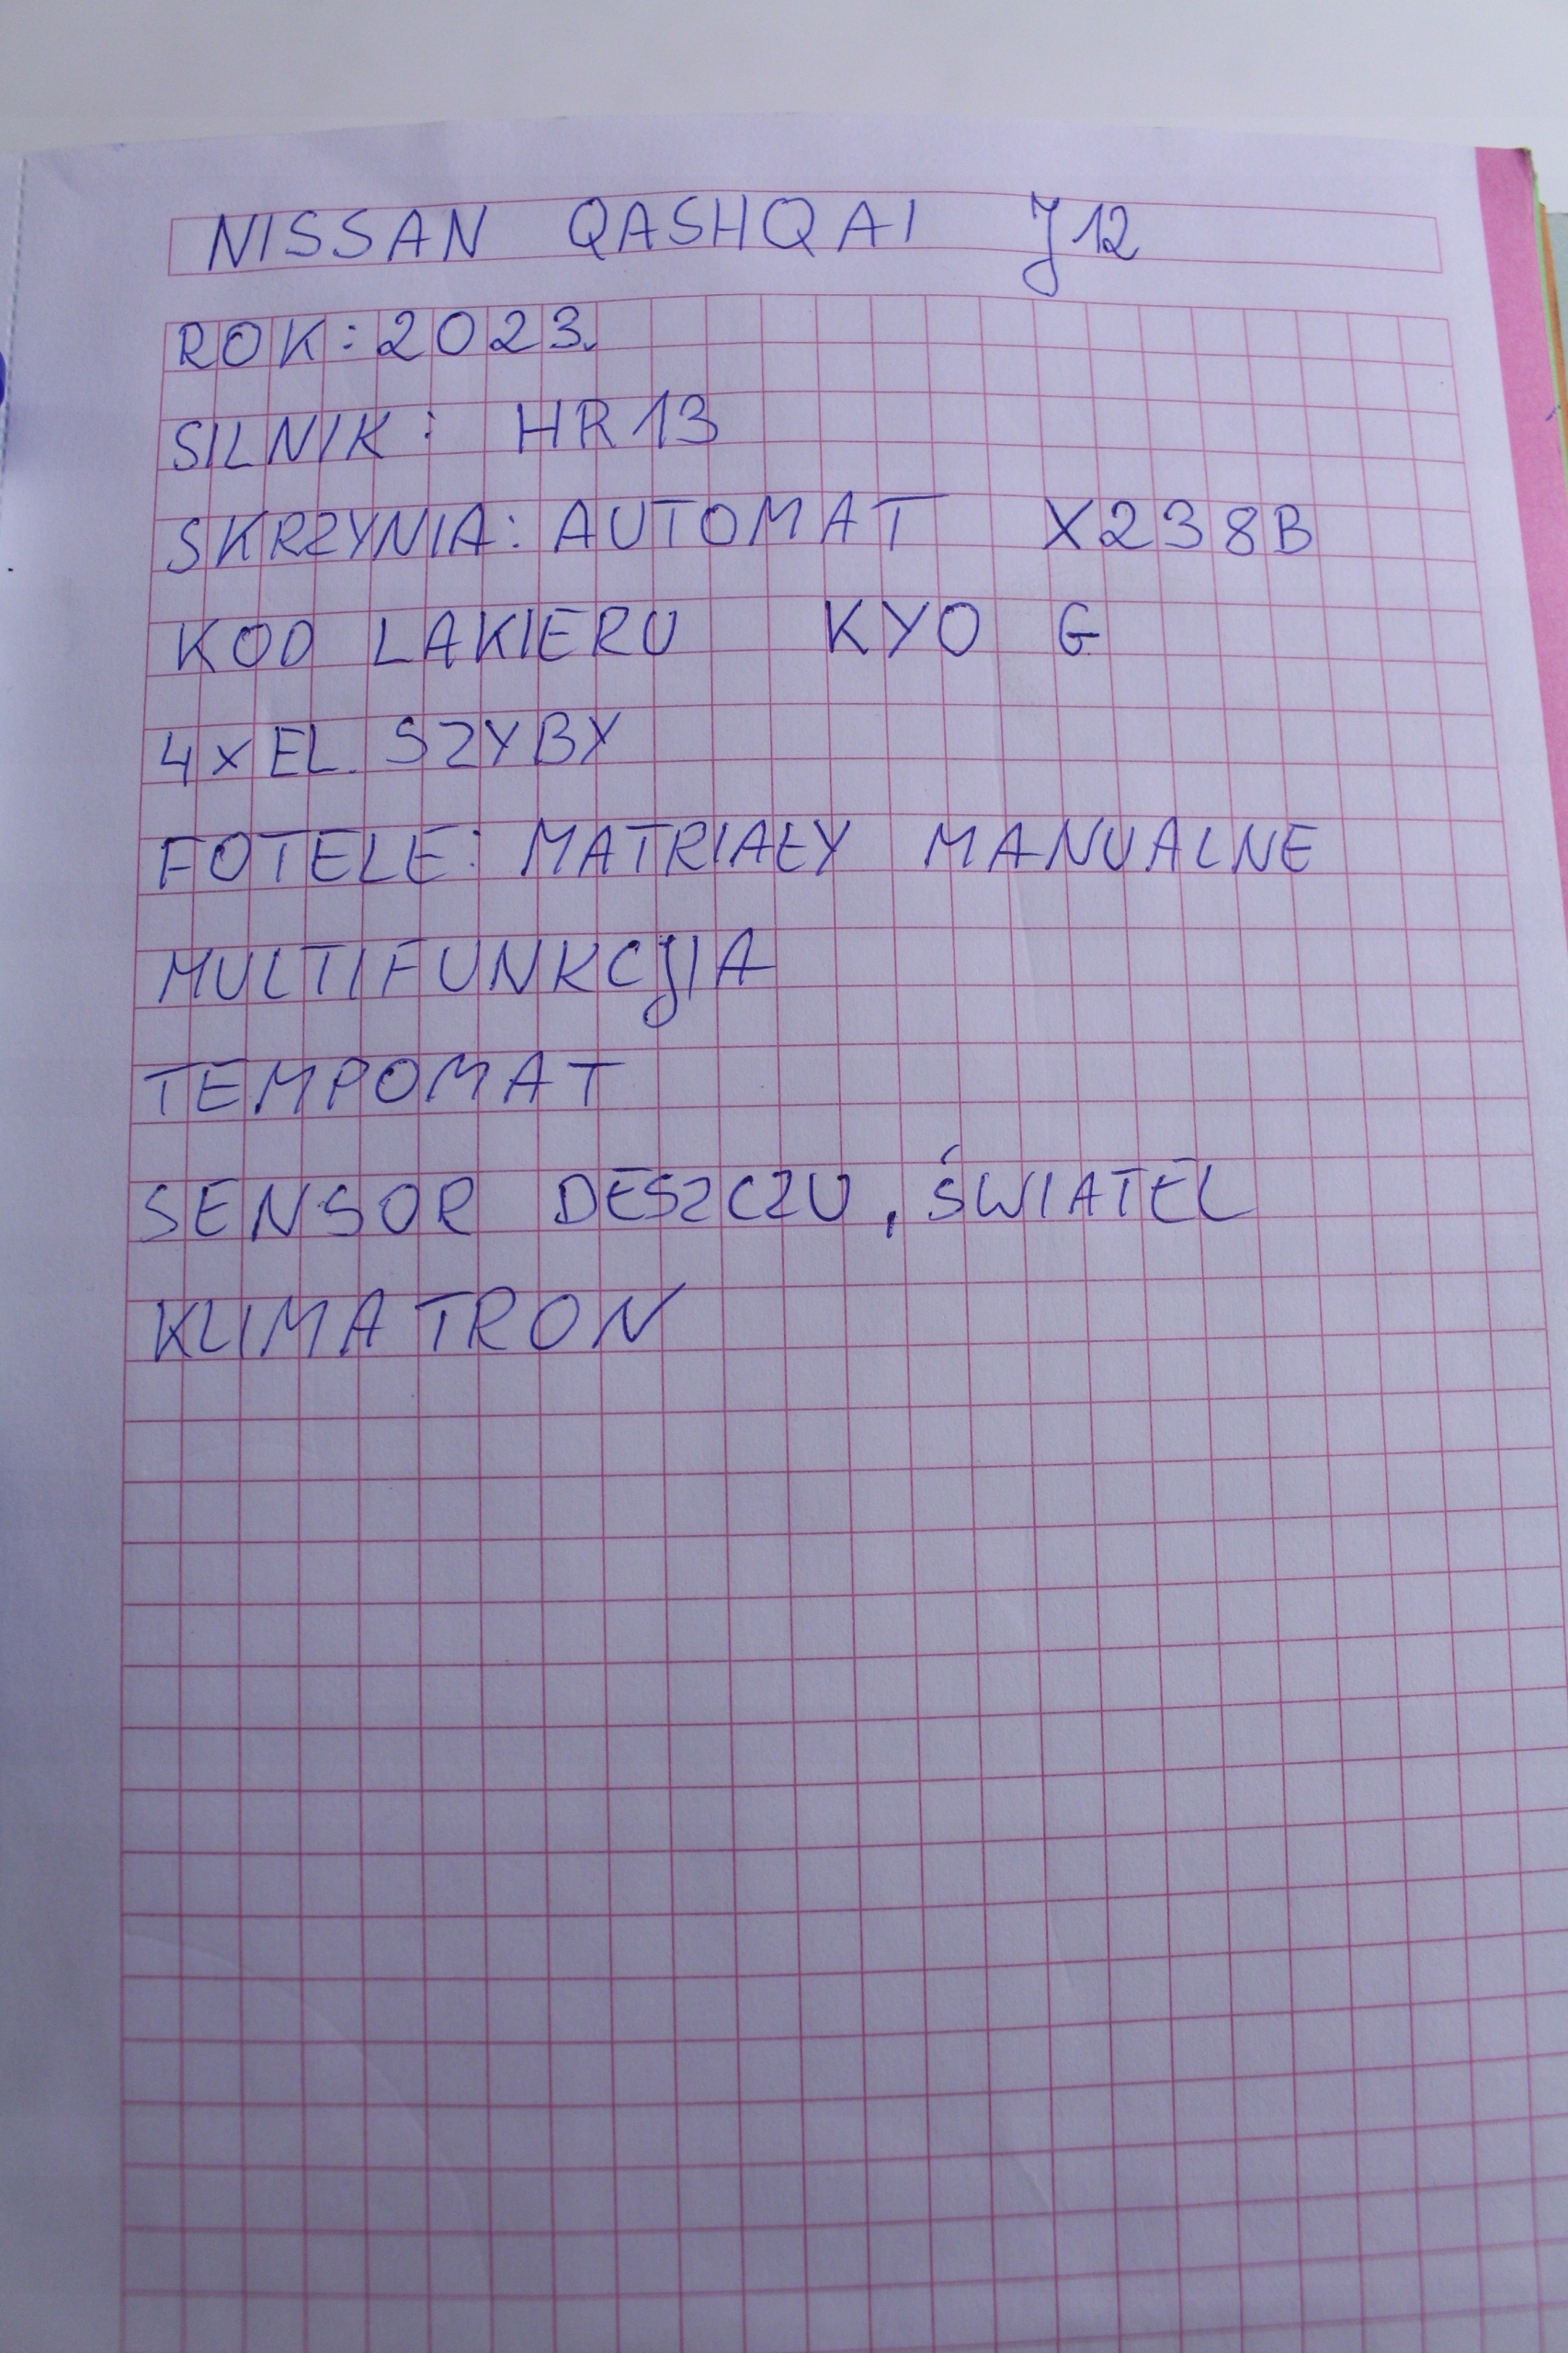 NISSAN QASHQAI J12
ROK: 2023.
SILNIK: HR13
SKRZYNIA: AUTOMAT X238B
KOD LAKIERU KYO G
4x EL. SZYBY
FOTELE: MATRIAŁY MANUALNE
MULTIFUNKCJIA
TEMPOMAT
SENSOR DESZCZU, ŚWIATEL
KLIMATRON